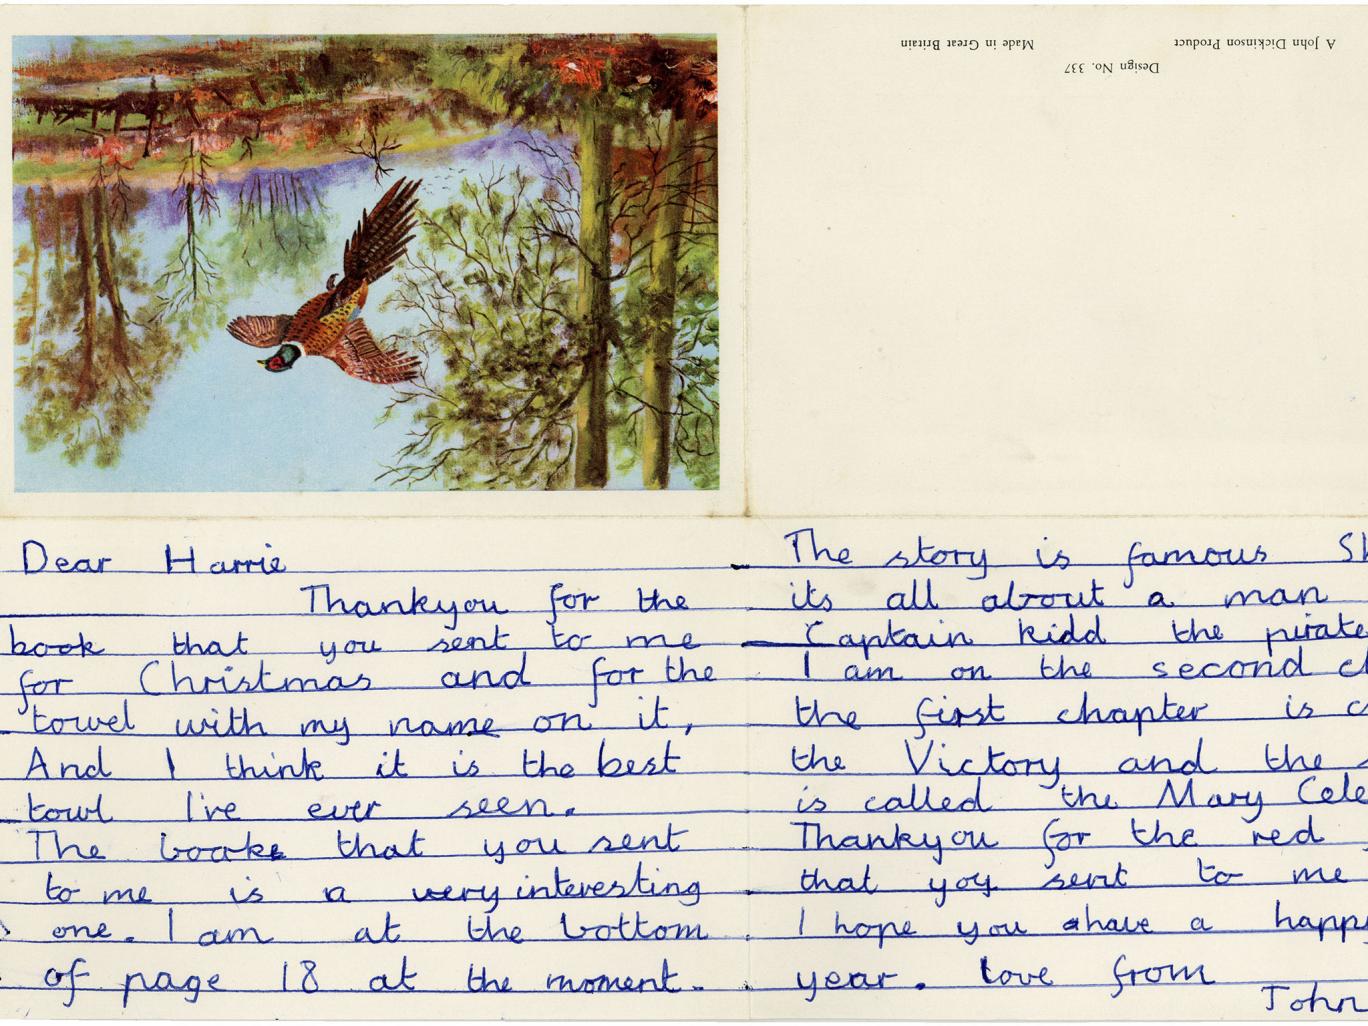 A John Dickinson Product
Made in Great Britain
Design No. 337
Dear Harrie
Thankyou for the
book that you sent to me
for Christmas and for the
towel with my name on it,
And I think it is the best
towl I've ever seen.
The booke that you sent
to me is a very interesting
one. I am at the bottom
of page 18 at the moment.
The story is famous Sh
its all about a man
Captain kidd the pirate
I am on the second ch
the first chapter is c
the Victory and the s
is called the Mary Cele
Thankyou for the red
that yoy sent to me
I hope you have a happ
year. love from
John